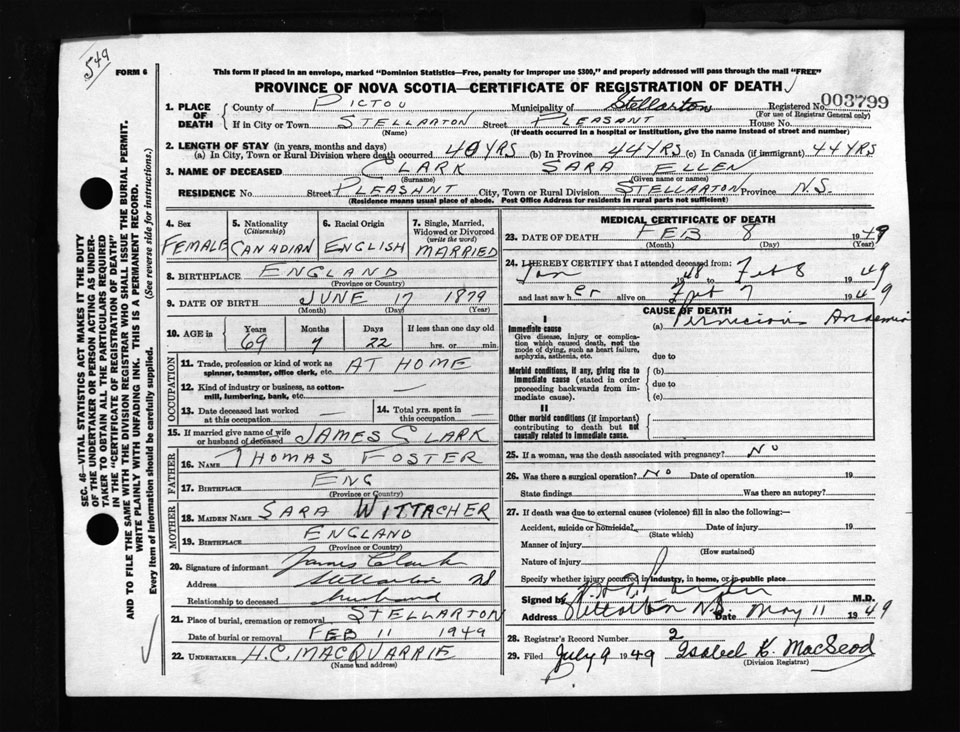 549
FORM 6
This form if placed in an envelope, marked "Dominion Statistics—Free, penalty for improper use $300," and properly addressed will pass through the mail "FREE"
PROVINCE OF NOVA SCOTIA—CERTIFICATE OF REGISTRATION OF DEATH
1. PLACE OF DEATH
County of PICTOU Municipality of Stellarton Registered No. 003799
(For use of Registrar General only)
If in City or Town STELLARTON Street PLEASANT House No.
(Name) (If death occurred in a hospital or institution, give the name instead of street and number)
2. LENGTH OF STAY (in years, months and days)
(a) In City, Town or Rural Division where death occurred 40 YRS (b) In Province 44 YRS (c) In Canada (if immigrant) 44 YRS
3. NAME OF DECEASED CLARK SARA ELLEN
(Surname) (Given name or names)
RESIDENCE No Street PLEASANT City, Town or Rural Division STELLARTON Province N.S.
(Residence means usual place of abode. Post Office Address for residents in rural parts not sufficient)
4. Sex FEMALE
5. Nationality (Citizenship) CANADIAN
6. Racial Origin ENGLISH
7. Single, Married, Widowed or Divorced (write the word) MARRIED
8. BIRTHPLACE ENGLAND
(Province or Country)
9. DATE OF BIRTH JUNE 17 1879
(Month) (Day) (Year)
10. AGE in Years 69 Months 7 Days 22 If less than one day old hrs. or min.
OCCUPATION
11. Trade, profession or kind of work as spinner, teamster, office clerk, etc. AT HOME
12. Kind of industry or business, as cotton-mill, lumbering, bank, etc. —
13. Date deceased last worked at this occupation —
14. Total yrs. spent in this occupation —
15. If married give name of wife or husband of deceased JAMES CLARK
FATHER
16. NAME THOMAS FOSTER
17. BIRTHPLACE ENG
(Province or Country)
MOTHER
18. MAIDEN NAME SARA WITTACHER
19. BIRTHPLACE ENGLAND
(Province or Country)
20. Signature of informant James Clark
Address Stellarton NS
Relationship to deceased husband
21. Place of burial, cremation or removal STELLARTON
Date of burial or removal FEB 11 1949
22. UNDERTAKER H.C. MACQUARRIE
(Name and address)
MEDICAL CERTIFICATE OF DEATH
23. DATE OF DEATH FEB 8 1949
(Month) (Day) (Year)
24. I HEREBY CERTIFY that I attended deceased from:
Jan 1948 to Feb 8 1949
and last saw her alive on Feb 7 1949
CAUSE OF DEATH
I
Immediate cause
Give disease, injury or complication which caused death, not the mode of dying, such as heart failure, asphyxia, asthenia, etc.
(a) Pernicious Anaemia
due to
Morbid conditions, if any, giving rise to immediate cause (stated in order proceeding backwards from immediate cause).
(b)
due to
(c)
II
Other morbid conditions (if important) contributing to death but not causally related to immediate cause.
25. If a woman, was the death associated with pregnancy? No
26. Was there a surgical operation? No Date of operation 19
State findings Was there an autopsy?
27. If death was due to external causes (violence) fill in also the following:—
Accident, suicide or homicide? Date of injury 19
(State which)
Manner of injury
(How sustained)
Nature of injury
Specify whether injury occurred in industry, in home, or in public place
Signed by M.D.
Address Stellarton N.S. Date May 11 1949
28. Registrar's Record Number 2
29. Filed July 9 1949 Isabel K. MacLeod
(Division Registrar)
SEC. 46—VITAL STATISTICS ACT MAKES IT THE DUTY
OF THE UNDERTAKER OR PERSON ACTING AS UNDER-
TAKER TO OBTAIN ALL THE PARTICULARS REQUIRED
IN THE "CERTIFICATE OF REGISTRATION OF DEATH"
AND TO FILE THE SAME WITH THE DIVISION REGISTRAR WHO SHALL ISSUE THE BURIAL PERMIT.
WRITE PLAINLY WITH UNFADING INK. THIS IS A PERMANENT RECORD.
Every item of information should be carefully supplied. (See reverse side for instructions.)